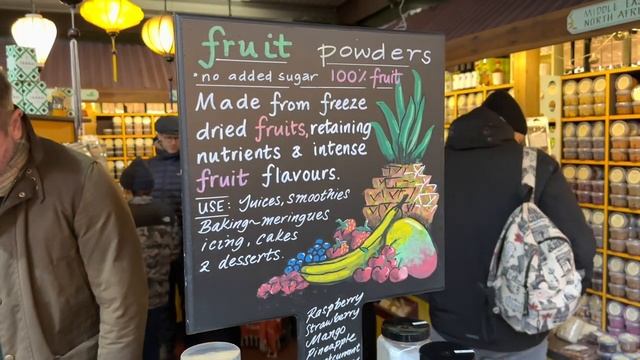 fruit powders
*no added sugar 100% fruit
Made from freeze
dried fruits, retaining
nutrients & intense
fruit flavours.
USE: Juices, smoothies
Baking~meringues
icing, cakes
& desserts.
Raspberry
Strawberry
Mango
Pineapple
MIDDLE EA
NORTH AFRI